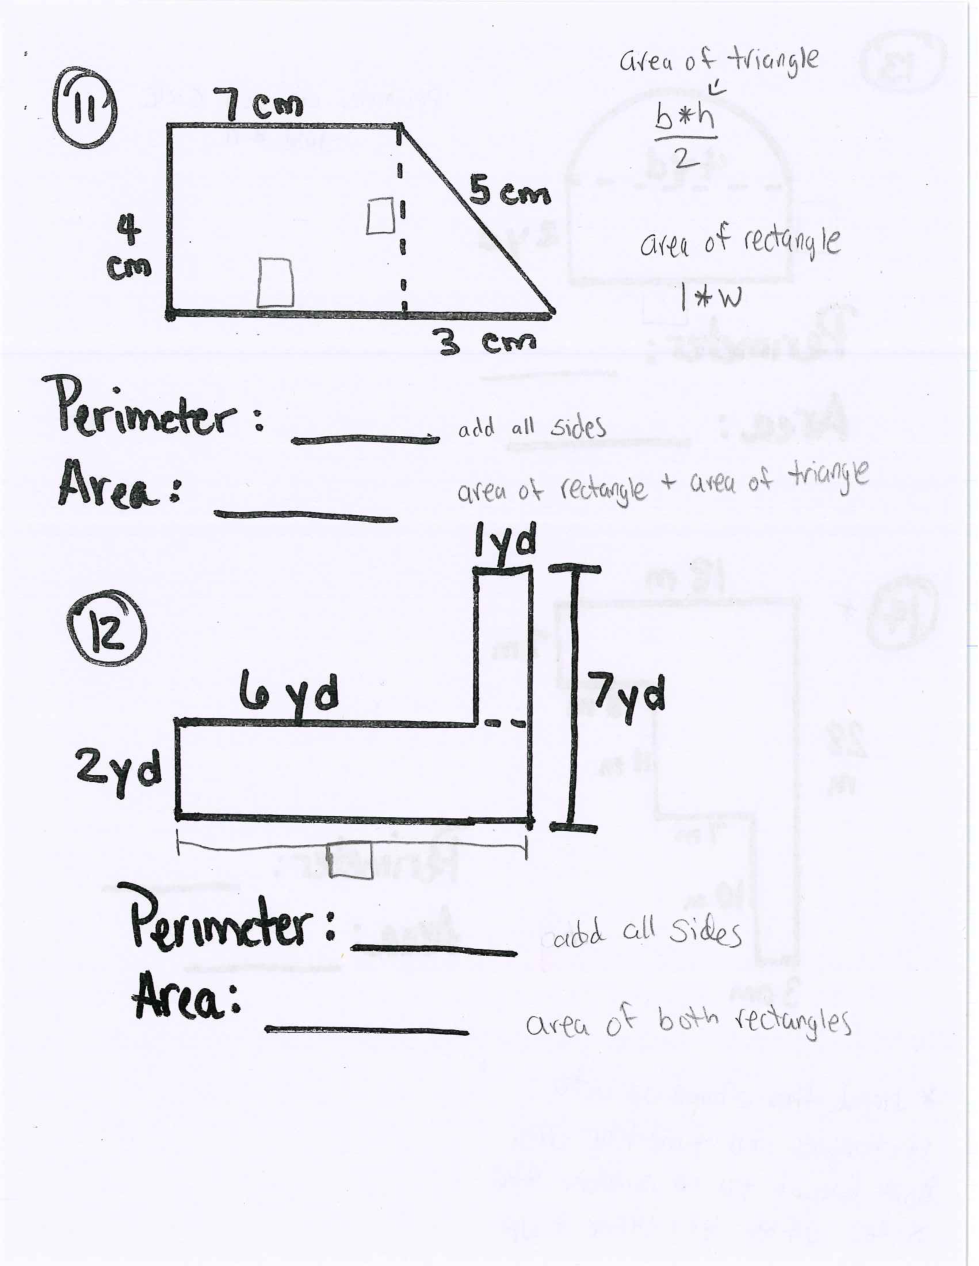 11
7 cm
4
cm
5 cm
3 cm
area of triangle
b*h
2
area of rectangle
l*w
Perimeter: add all sides
Area: area of rectangle + area of triangle
12
1yd
6 yd
7yd
2yd
Perimeter: add all sides
Area: area of both rectangles